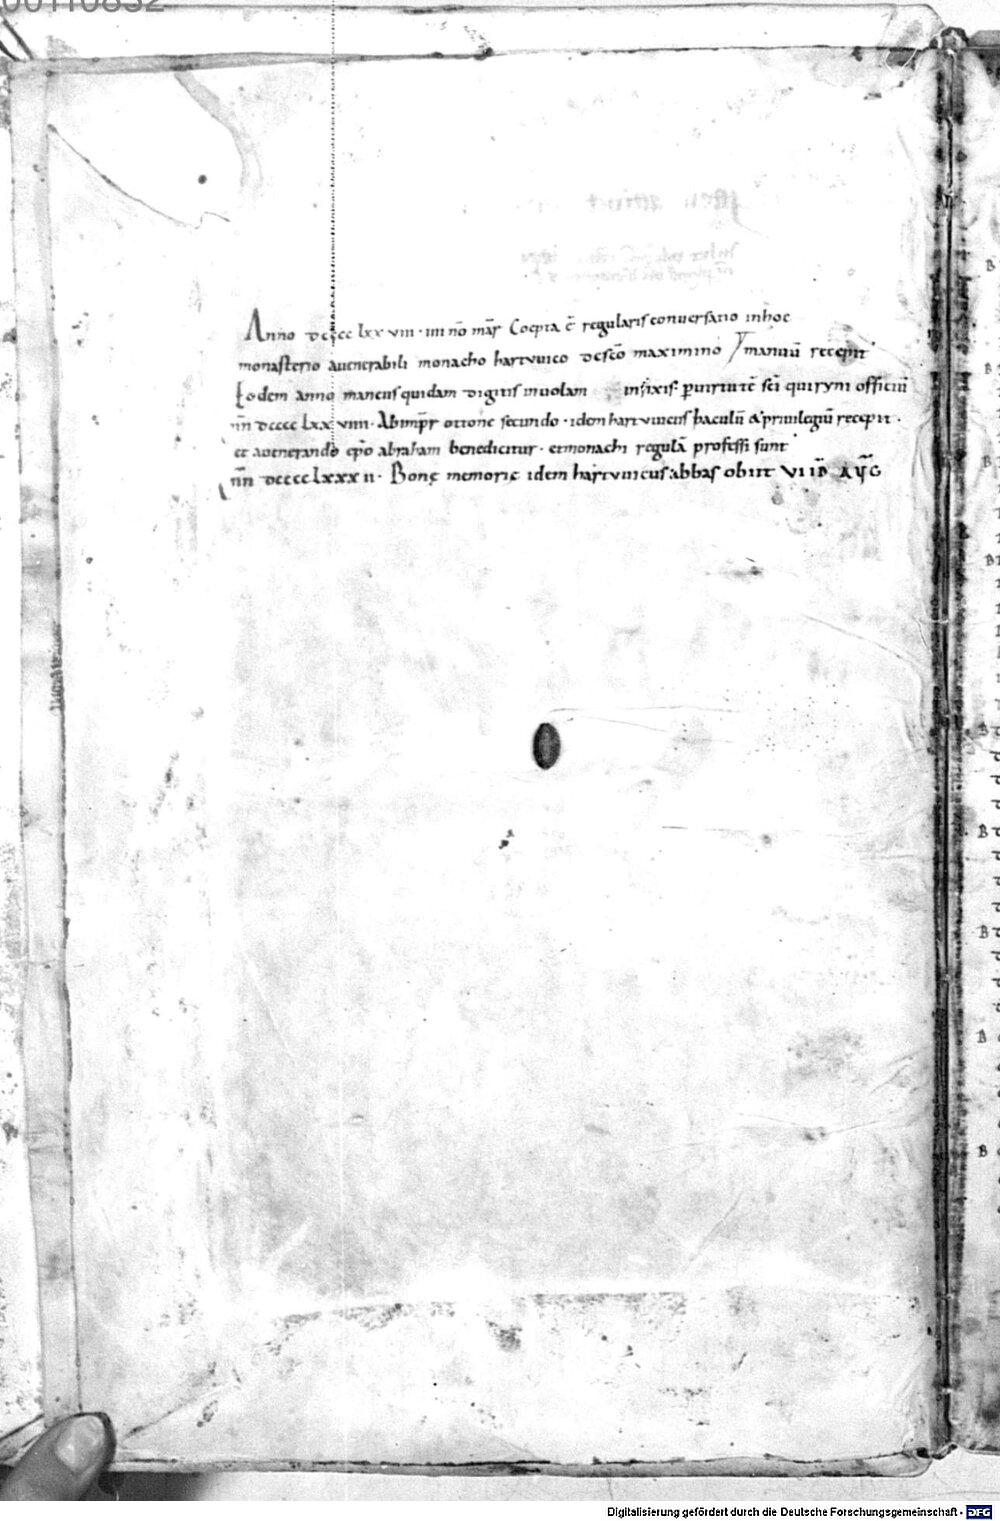 00110832
Anno dcccc lxx viii · iiii nō mar̄ Coepta ē regularis conuersatio in hoc
monasterio auenerabili monacho hartuuico desc̄o maximino
manuū recepit
Eodem anno mancus quidam digitis inuolam infixis p uirtutē sc̄i quiryni officiū
nn̄ dcccc lxx viiii · Ab imp̄r ottone secundo · idem hartuuicus baculū & priuilegiū recepit ·
et auenerando ep̄o abraham benedicitur · et monachi regulā professi sunt
nn̄ dcccc lxxx ii · Bonę memorię idem hartuuicus abbas obiit VIID AVG
Digitalisierung gefördert durch die Deutsche Forschungsgemeinschaft - DFG